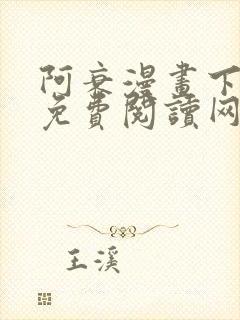 阿衰漫畫下
免費閱讀网
王溪